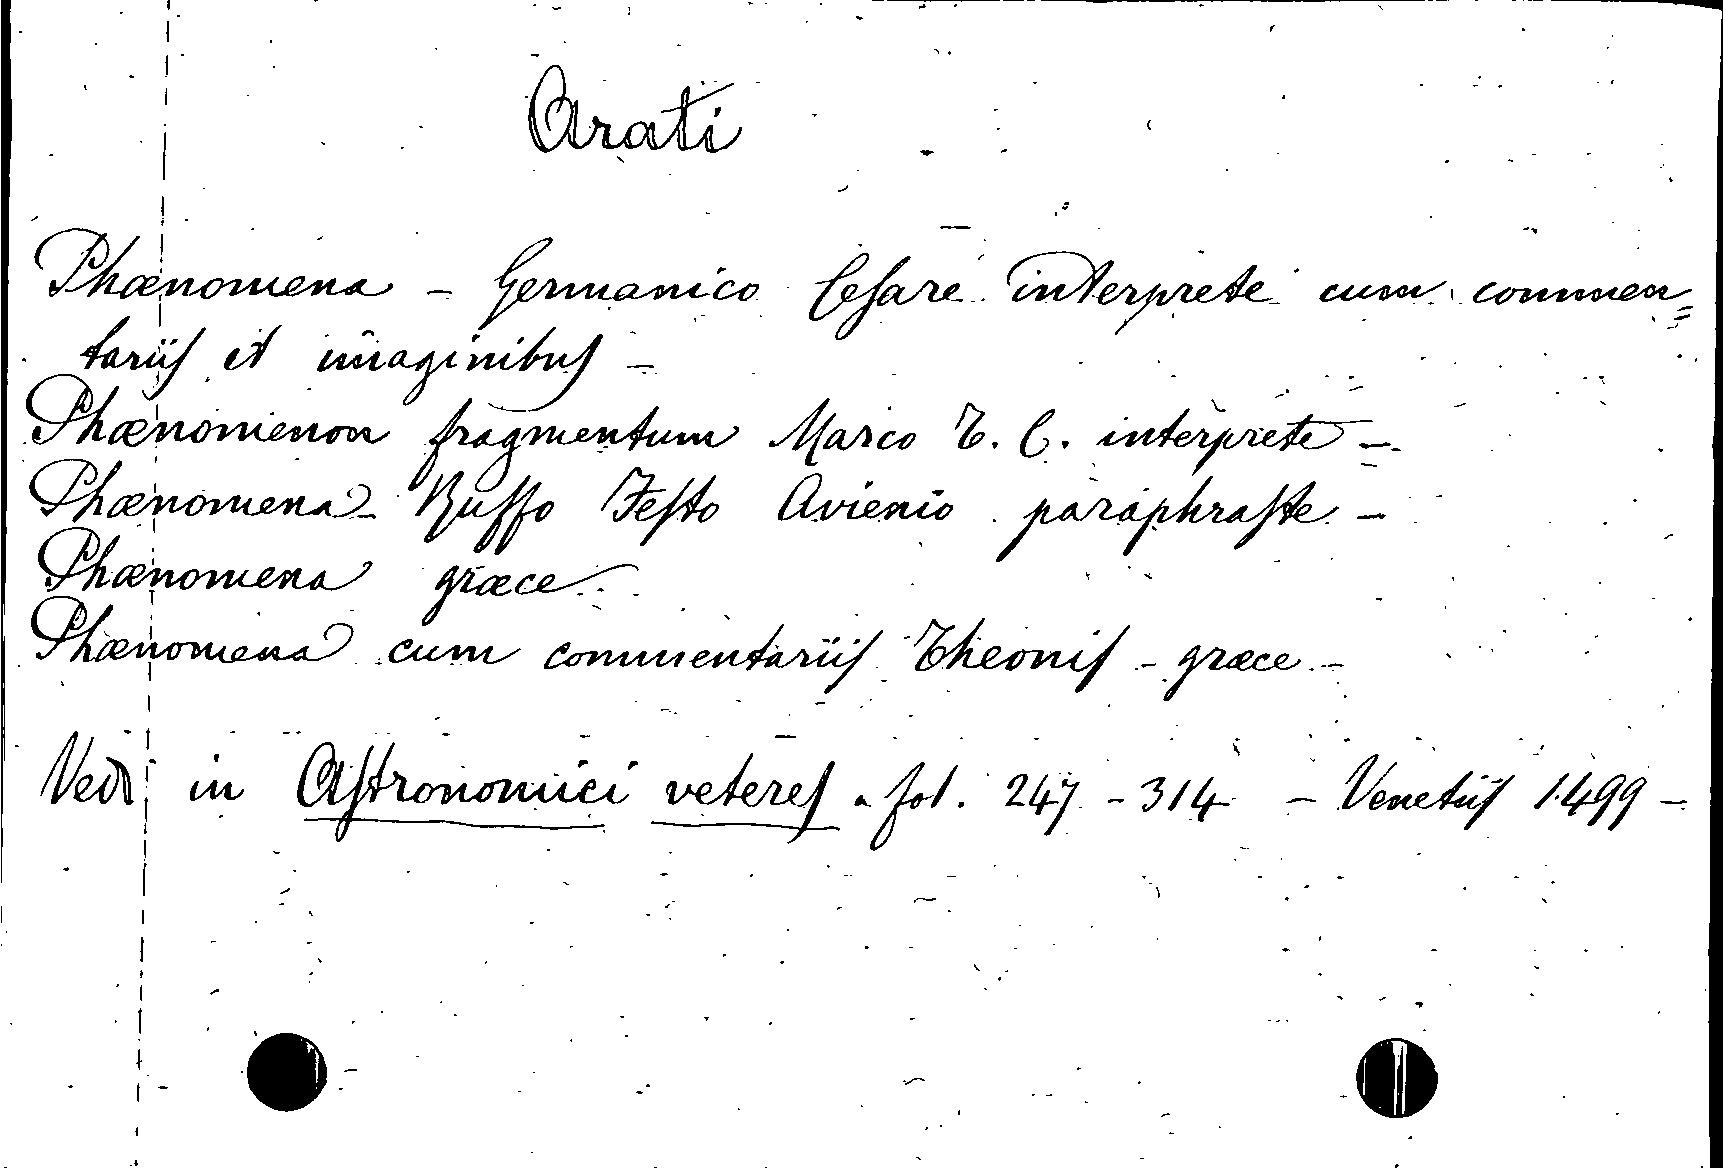 Arati
Phænomena - Germanico Cesare interprete cum commen=
tariis et imaginibus -
Phænomenon fragmentum Marco T. C. interprete -
Phænomena - Ruffo Festo Avienio paraphraste -
Phænomena græce
Phænomena cum commentariis Theonis - græce -
Vedi in Astronomici veteres - fol. 247 - 314 - Venetiis 1499 -